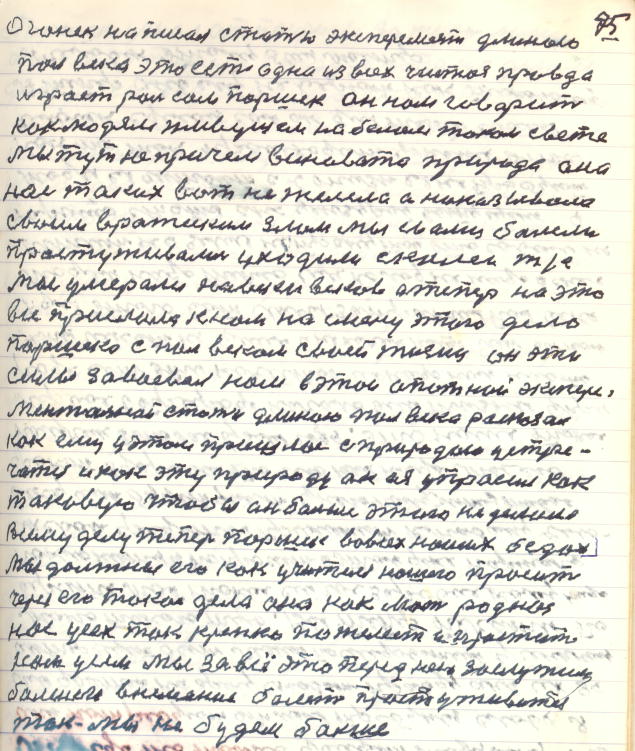 75
Огонек написал статю эксперемент длиною
пол века это есть одна из всех чистоя правда
играет рол сам паршек он нам говорит
как людям живущем на белом таком свете
мы тут не причем виновата природа она
нас таких вот не жилела а наказывала
своим вражиским злом мы
простуживали уходили с
мы умерали навеки веков а типер на это
все пришлола к нам на смену этого дело
паршек с пол веком своей жизни он эти
силы завоевал нам в этой опотной экспери-
ментальной стати длиною пол века расказал
как ему у этом пришлос с природаю устре-
чатся и как эту природу он упрасил как
таковую чтобы он болше этого не делала
всему делу типер паршек во всех наших бедах
мы должны его как учителя нашего просит
через его такое дела она как мат родная
нас усех так крепко пожелеет и простит
нам усем мы за всё это перед ней заслужим
болшего внимание болет простуживатся
так мы не будем болше